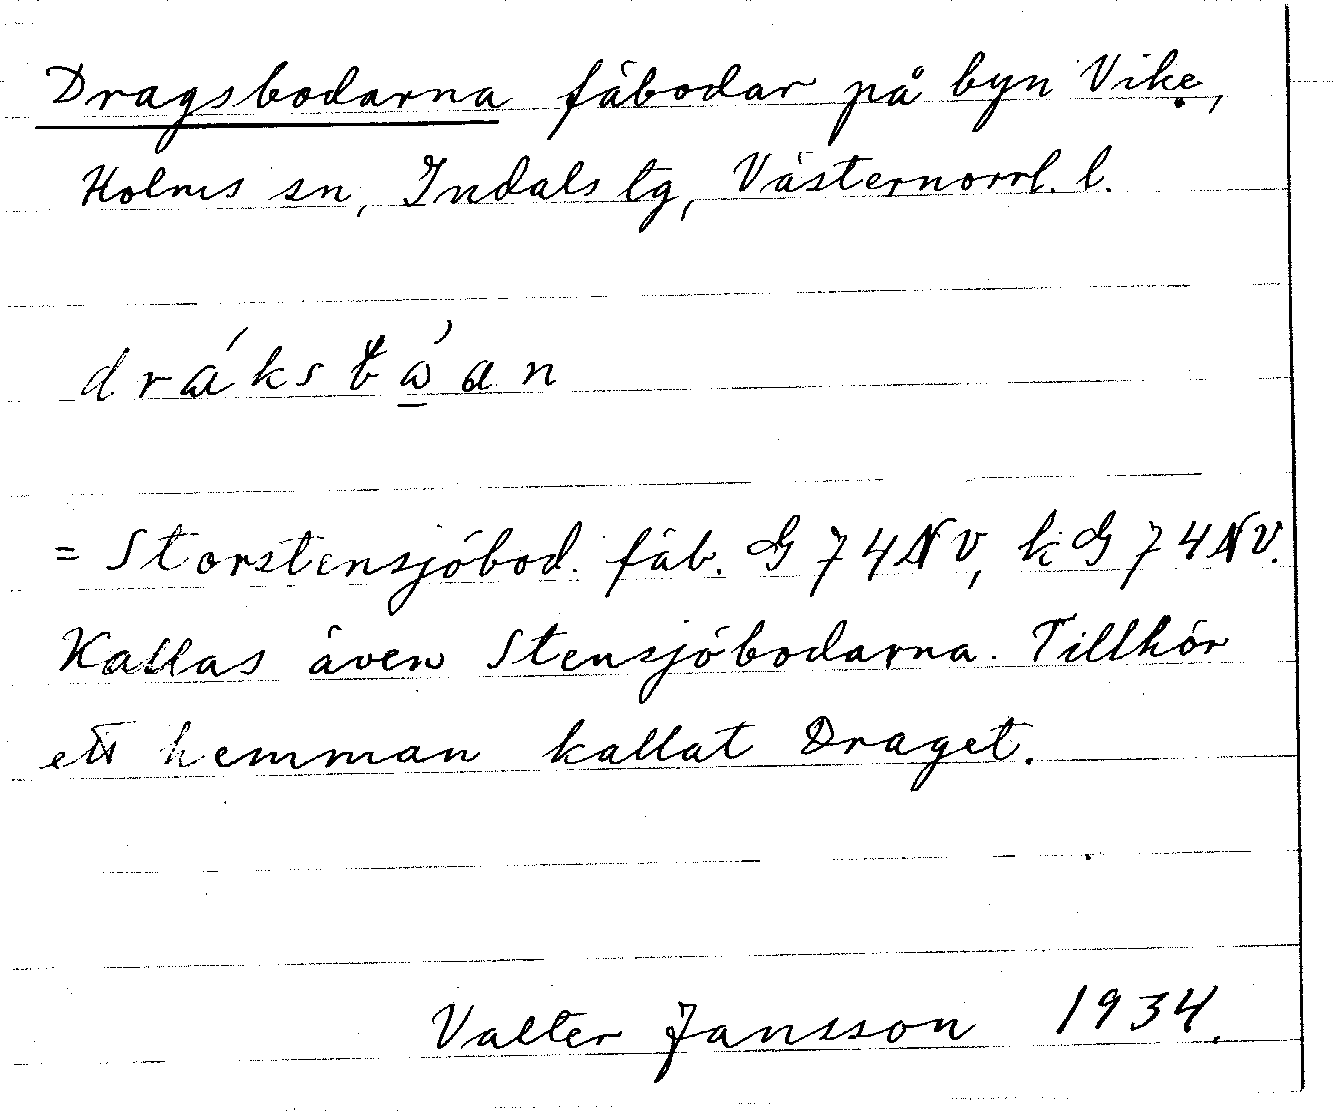 Dragsbodarna fäbodar på byn Vike,
Holms sn, Indals tg, Västernorrl. l.
= Storstensjöbod. fäb. G 74 NV, k G 74 NV.
Kallas även Stensjöbodarna. Tillhör
ett hemman kallat Draget.
Valter Jansson 1934.